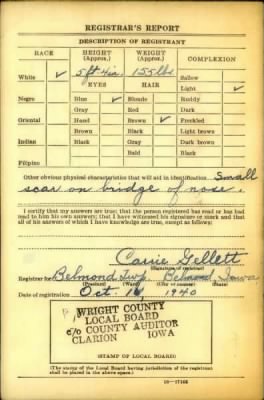 REGISTRAR'S REPORT
DESCRIPTION OF REGISTRANT
RACE HEIGHT (Approx.) WEIGHT (Approx.) COMPLEXION
White ✓ 5 ft 4 in. 155 lbs. Sallow
EYES HAIR Light ✓
Negro Blue ✓ Blonde Ruddy
Gray Red Dark
Oriental Hazel Brown ✓ Freckled
Brown Black Light brown
Indian Black Gray Dark brown
Bald Black
Filipino
Other obvious physical characteristics that will aid in identification Small
scar on bridge of nose.
I certify that my answers are true; that the person registered has read or has had
read to him his own answers; that I have witnessed his signature or mark and that
all of his answers of which I have knowledge are true, except as follows:
Carrie Gellett
(Signature of registrar)
Registrar for Belmond Twp. Belmond Iowa
(Precinct) (Ward) (City or county) (State)
Date of registration Oct. 16, 1940
WRIGHT COUNTY
LOCAL BOARD
c/o COUNTY AUDITOR
CLARION IOWA
(STAMP OF LOCAL BOARD)
(The stamp of the Local Board having jurisdiction of the registrant
shall be placed in the above space.)